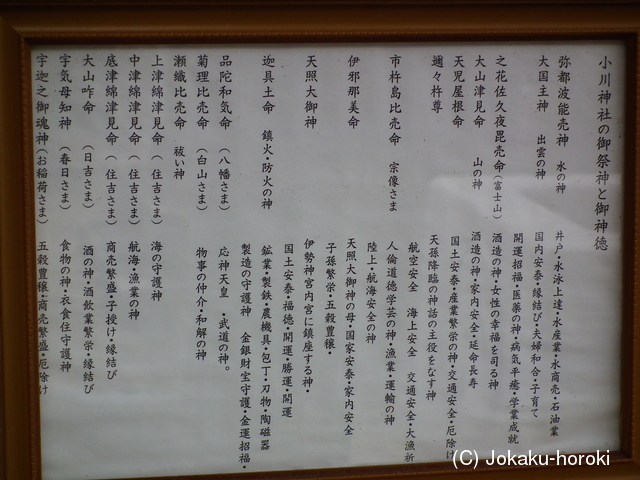 小川神社の御祭神と御神徳
弥都波能売神 水の神 井戸・水泳上達・水産業・水商売・石油業
大国主神 出雲の神 国内安泰・縁結び・夫婦和合・子育て
開運招福・医薬の神・病気平癒・学業成就
之花佐久夜毘売命(富士山) 酒造の神・女性の幸福を司る神
大山津見命 山の神 酒造の神・家内安全・延命長寿
天児屋根命 国土安泰・産業繁栄の神・交通安全・厄除け
邇々杵尊 天孫降臨の神話の主役をなす神
航空安全 海上安全 交通安全・大漁祈
市杵島比売命 宗像さま 人倫道徳学芸の神・漁業・運輸の神
陸上・航海安全の神
伊邪那美命 天照大御神の母・国家安泰・家内安全
子孫繁栄・五穀豊穣・
天照大御神 伊勢神宮内宮に鎮座する神・
国土安泰・福徳・開運・勝運・開運
迦具土命 鎮火・防火の神 鉱業・製鉄・農機具・包丁・刃物・陶磁器
製造の守護神 金銀財宝守護・金運招福・
品陀和気命 (八幡さま) 応神天皇 ・武道の神。
菊理比売命 (白山さま) 物事の仲介・和解の神
瀬織比売命 祓い神
上津綿津見命 (住吉さま) 海の守護神
中津綿津見命 (住吉さま) 航海・漁業の神
底津綿津見命 (住吉さま) 商売繁盛・子授け・縁結び
大山咋命 (日吉さま) 酒の神・酒飲業繁栄・縁結び
宇気母知神 (春日さま) 食物の神・衣食住守護神
宇迦之御魂神(お稲荷さま) 五穀豊穣・商売繁盛・厄除け
(C) Jokaku-horoki